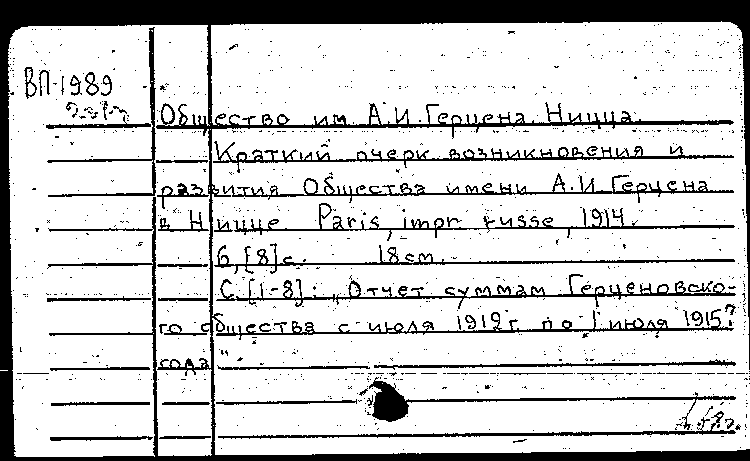 ВП-1989
Общество им А.И.Герцена. Ницца.
Краткий очерк возникновения и
развития Общества имени А.И Герцена
в Ницце Paris, impr russe, 1914.
6,[8]с. 18см.
С.[1-8]: „Отчет суммам Герценовско-
го общества с июля 1912г по 1 июля 1915?
года"